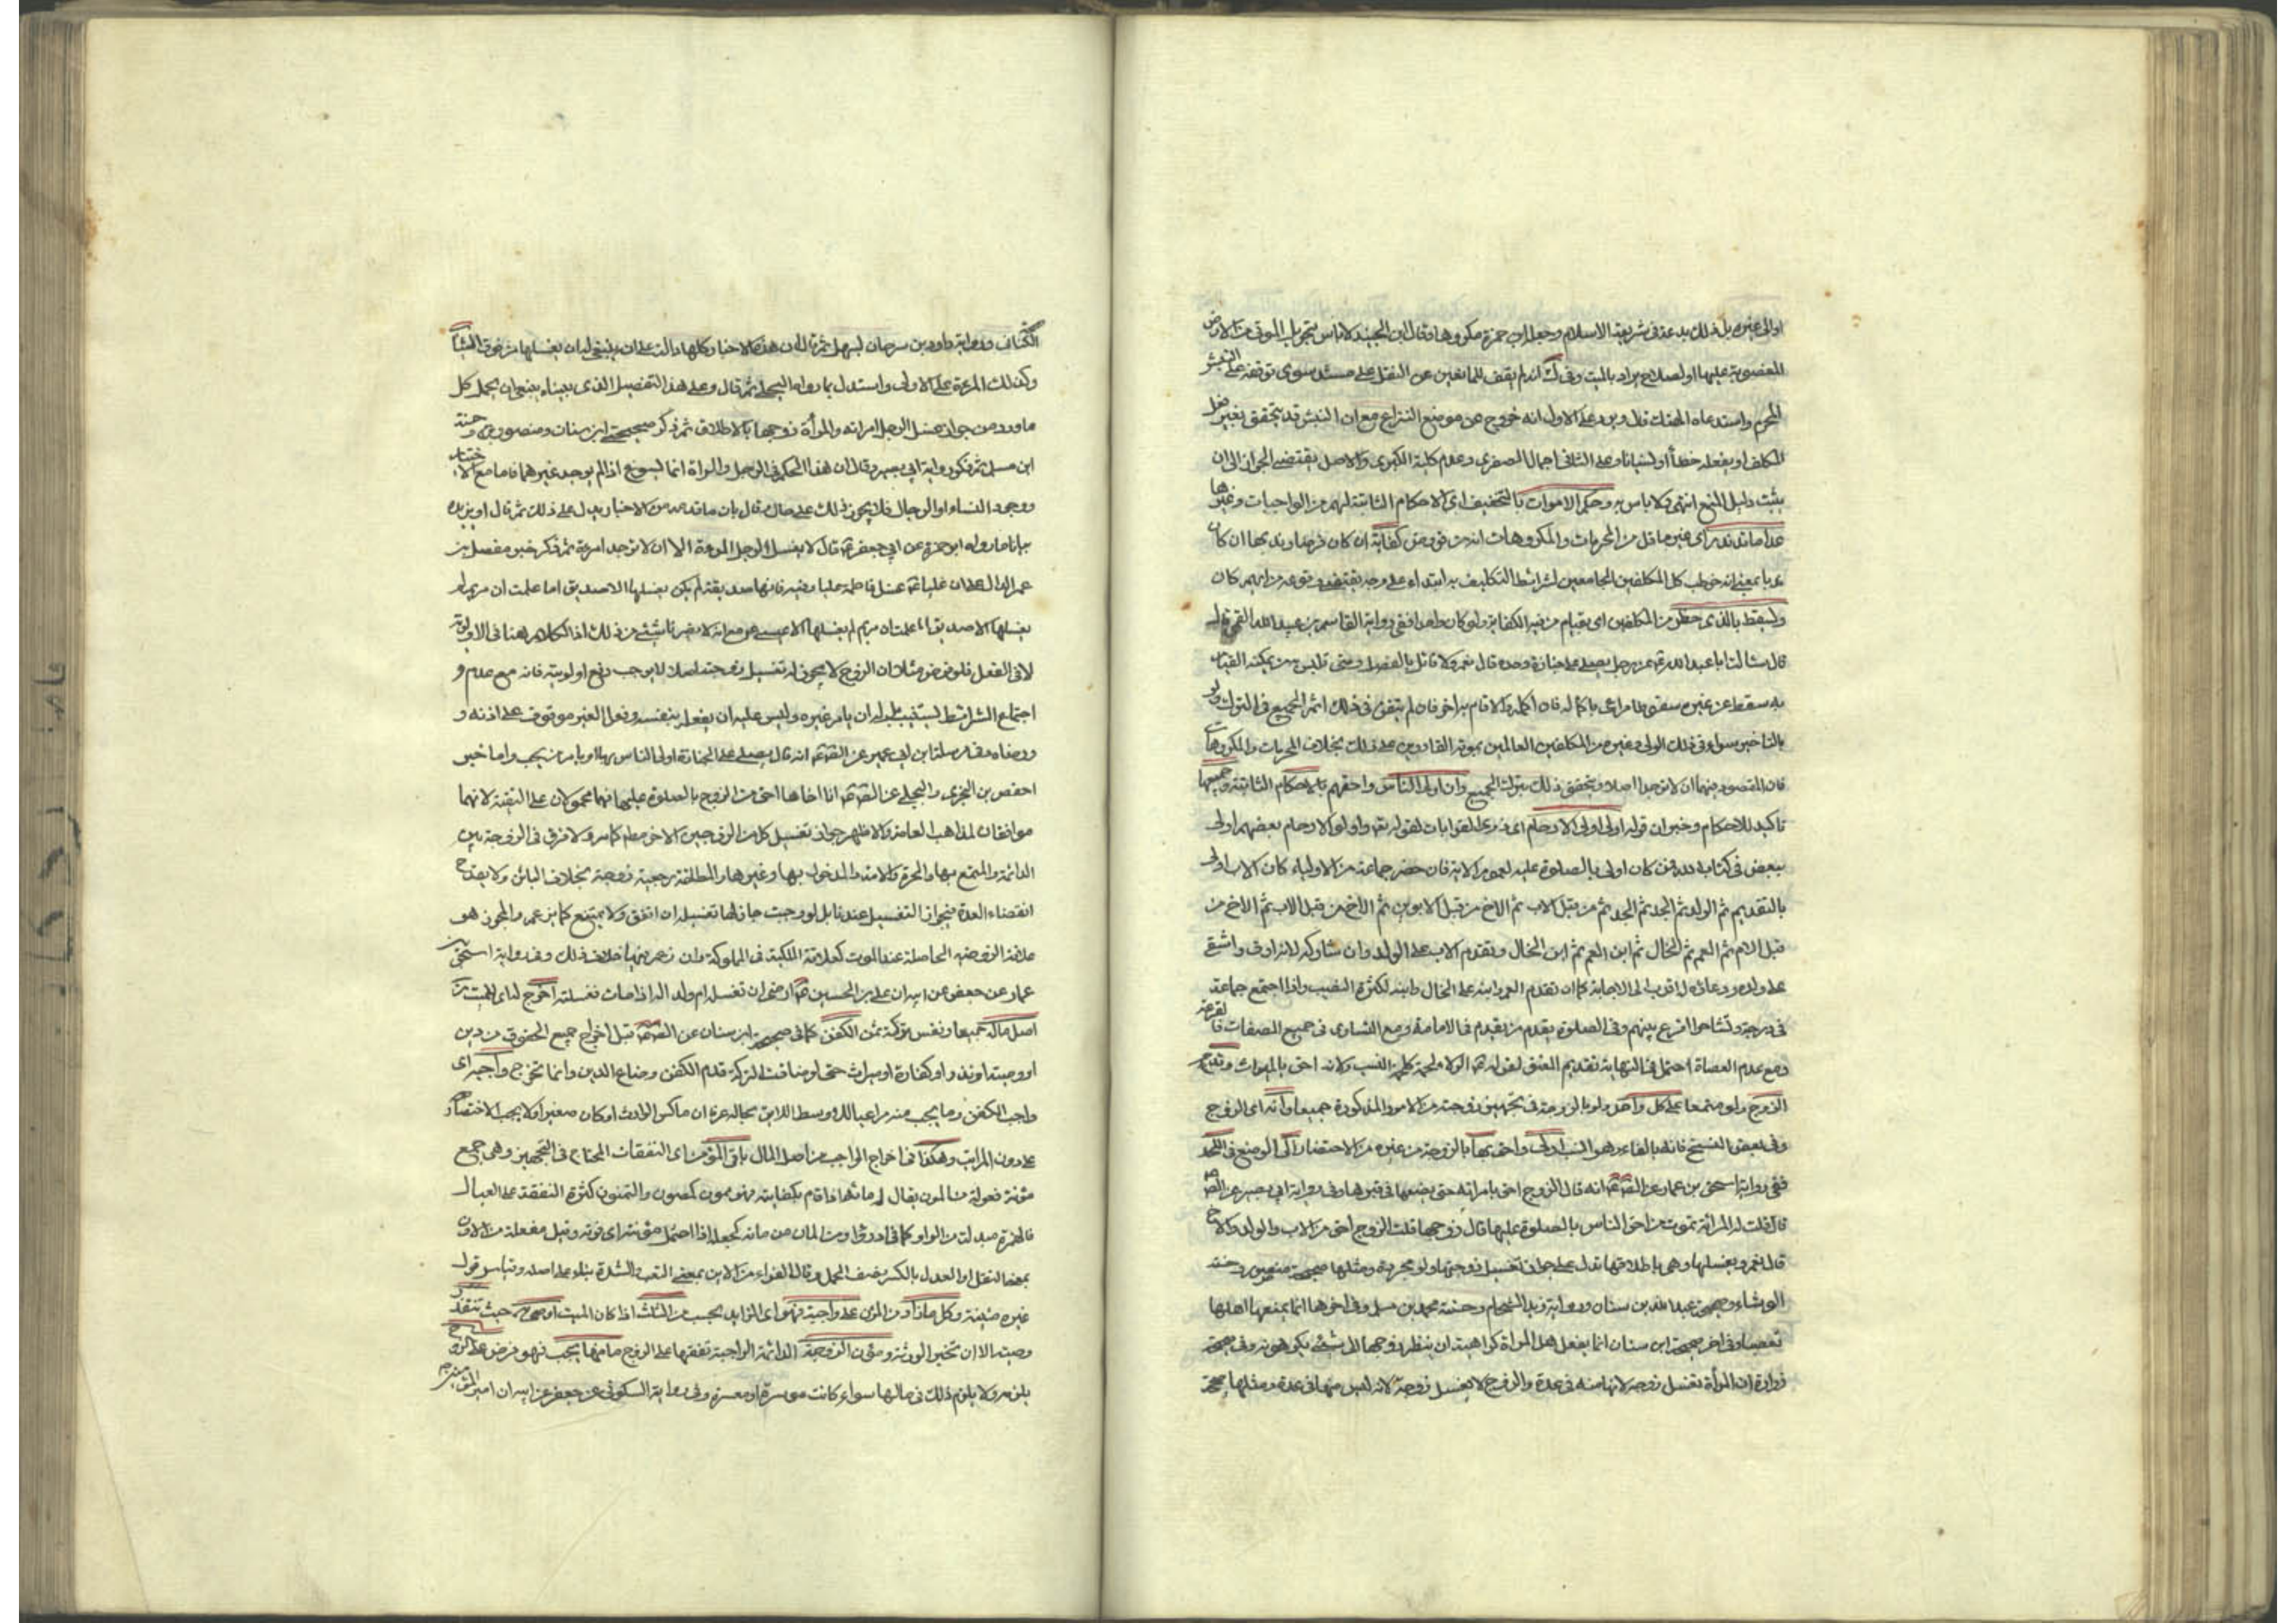 اولى غيره بل ذلك بدعة فى شريعة الاسلام وجعل ابن حمزة مكروها وقال ابن الجنيد لا باس بتحويل الموتى من الارض
المغصوبة عليها او لصلاح يراد بالميت وفى انه لم يقف للمانعين عن النقل على مستند سوى توقفه على النبش
المحرم واستدعاه الهتك قال ويرد على الاول انه خروج عن موضع النزاع مع ان النبش قد يتحقق بغير فعل
المكلف او بفعله خطأ او نسيانا وعلى الثانى اجمال الصغرى وعدم كلية الكبرى والاصل يقتضى الجواز الى ان
يثبت دليل المنع انتهى ولا باس به وحكم الاموات بالتخفيف اى الاحكام الثابتة لهم من الواجبات وغيرها
عدا ما تندر اى غير ما قل من المحرمات والمكروهات انه من فروض كفاية ان كان فرضا وندبها ان كان
ند با بمعنى انه خوطب كل المكلفين الجامعين لشرائط التكليف به ابتداء على وجه يقتضى وقوعه من ايهم كان
ويسقط بالذى حظر من المكلفين اى بقيام من فيه الكفاية ولو كان واحدا ففى رواية القاسم بن عبيد الله القمى قال
قال سالت ابا عبد الله عن رجل يصلى على جنازة وحده قال نعم ولا قائل بالفصل ومتى تلبس من يمكنه القيام
به سقط عن غيره سقوطا مراعى باكماله فان اكمله والا قام به اخر فان لم يتفق فى ذلك اثم الجميع فى الترك ولو
بالتاخير سواء فى ذلك الولى وغيره من المكلفين العالمين بموته القادرين على ذلك بخلاف المحرمات والمكروهات
فان المقصود منهما ان لا توجدا اصلا ويتحقق ذلك بترك الجميع وان اولى الناس واحقهم بالاحكام الثابتة وجميعها
تاكيد للاحكام وخبر ان قوله اولى اولى الارحام اى ذوى القرابات لقوله تعم واولو الارحام بعضهم اولى
ببعض فى كتاب الله فمن كان اولى بالصلوة عليه لعموم الاية فان حضر جماعة من الاولياء كان الاب اولى
بالتقديم ثم الولد ثم الجد ثم من قبل الاب ثم الاخ من قبل الابوين ثم الاخ من قبل الاب ثم الاخ من
قبل الام ثم العم ثم الخال ثم ابن العم ثم ابن الخال وتقدم الاب على الولد وان شاركه لانه ارق واشفق
على ولده ودعاؤه اقرب الى الاجابة كما ان تقدم العم وابنه على الخال وابنه لكثرة النصيب واذا اجتمع جماعة
فى درجة وتشاحوا اقرع بينهم وفى الصلوة يقدم من يقدم فى الامامة ومع التساوى فى جميع الصفات فالقرعة
ومع عدم العصبة احتمل فى النهاية تقديم المعتق لقوله الولاء لحمة كلحمة النسب ولانه احق بالميراث وتقدم
الزوج ولو متمتعا على كل واحد ولو بالزوجة فى تجهيز زوجته من الامور المذكورة جميعا وانه اى الزوج
وفى بعض النسخ فانه بالفاء وهو انسب اولى واحق بها بالزوجة من غيره من الاحتضار الى الوضع فى اللحد
ففى رواية اسحق بن عمار عن انه قال الزوج احق بامراته حتى يضعها فى قبرها وفى رواية ابى بصير عن
قال قلت له المرأة تموت من احق الناس بالصلوة عليها قال زوجها قلت الزوج احق من الاب والولد والاخ
قال نعم ويغسلها وهى باطلاقها تدل على جواز تغسيل زوجتها ولو مجردة ومثلها صحيحة منصور وحسنة
الوشاء وصحيح عبد الله بن سنان ورواية زيد الشحام وحسنة محمد بن مسلم وفى اخرها انما يمنعها اهلها
تعصبا وفى اخر صحيحة ابن سنان انما يفعل اهل المرأة كراهية ان ينظر زوجها الى شئ يكرهونه وفى صحيحة
زرارة ان المرأة تغسل زوجها لانها منه فى عدة والزوج لا يغسل زوجته لانه ليس منها فى عدة ومثلها صحيحة
الكتاب ورواية داود بن سرحان لسهل ثم قال ان هذه الاخبار كلها دالت على ان ينبغى له ان يغسلها من فوق الثياب
وكذلك المرءة على الاولى واستدل بما رواه البجلى ثم قال وعلى هذا التفصيل الذى بيناه ينبغى ان يحمل كل
ما ورد من جواز غسل الرجل امراته والمرأة زوجها بالاطلاق ثم ذكر صحيحة ابن سنان ومنصور وحسنة
ابن مسلم ثم ذكر رواية ابى بصير وقال ان هذا الحكم فى الرجل والمراة انما يسوغ اذا لم يوجد غيرهما فاما مع الاختيار
ووجود النساء او الرجال فلا يجوز ذلك على حال قال بان ما تقدم من الاخبار يدل على ذلك ثم قال او يزيده
بيانا ما رواه ابو حمزة عن ابى جعفر قال لا يغسل الرجل المرءة الا ان لا توجد امرءة ثم ذكر خبر مفصل بن
عمر الدال على ان عليا غسل فاطمة عليها وفيه فانها صديقة لم يكن يغسلها الا صديق اما علمت ان مريم لم
يغسلها الا عيسى
لا فى الفعل فلو فرض مثلا ان الزوج لا يجوز له تغسيل زوجته اصلا لا يوجب رفع اولويته فانه مع عدم و
اجتماع الشرائط يستنيب عليه ان يامر غيره وليس عليه ان يفعله بنفسه وفعل الغير موقوف على اذنه و
ورضاه وفى مرسلة ابن ابى عمير عن انه قال يصلى على الجنازة اولى الناس بها او يامر من يحب واما خبر
احفص بن البخترى والبجلى عن ان اخاها احق من الزوج بالصلوة عليها فهما محمولان على التقية لانهما
موافقان لمذاهب العامة والاظهر جواز تغسيل كل من الزوجين الاخر مطلقا كما مر ولا فرق فى الزوجة بين
الدائمة والمتمتع بها والحرة والامة والمدخول بها وغيرها والمطلقة رجعية زوجة بخلاف البائن ولا يقدح
انقضاء العدة فى جواز التغسيل عندنا بل لو رجت جاز لها تغسيله ان اتفق ولا يمتنع كابن عمر والمجوز هو
علاقة الزوجية الحاصلة عند الموت كعلاقة الملكية فى المملوكة وان زعم فيها خلاف ذلك وفى رواية اسحق بن
عمار عن جعفر عن ابيه ان على بن الحسين اوصى ان تغسله ام ولد له اذا مات فغسلته اخرج له اى للميت من
اصل ماله جميعا ونفس تركة ثمن الكفن كما فى صحيحة ابن سنان عن قبل اخراج جميع الحقوق من دين
او وصية او نذر او كفارة او ميراث حتى لو ضاقت التركة قدم الكفن وضاع الدين وانما تخرج واجبه اى
واجب الكفن وما يجب منه مراعيا للوسط اللايق بحاله عرفا ان ماكس الوارث او كان صغيرا ولا يجب الاختصار
على دون المراتب وهكذا فى اخراج الواجب من اصل المال باقى المؤن اى النفقات المحتاج فى التجهيز وهى جمع
مؤنة فعولة من المون يقال مانها اذا قام بكفايته فهو ممون كمصون والتمون كثرة النفقة على العيال
فالهمزة مبدلة من الواو كما فى ادور او من المان من مانه كجعله اذا احتمل مؤنته اى قوته وقيل مفعلة من الاون
بمعنى الثقل او العدل بالكسر نصف الحمل وقال الفراء من الاين بمعنى التعب والشدة بناء على اصله وقياس قول
غيره مئينة وكل ما زاد من المؤن على واجبه فهو اى الزايد يحسب من الثلث اذا كان الميت اوصى حيث تنفذ
وصيته الا ان تخير الورثة ومؤن الزوجة الدائمة الواجبة نفقتها على الزوج ما منها يجب فهو فرض على الزوج
يلزمه ولا يلزم ذلك فى مالها سواء كانت موسرة او معسرة وفى رواية السكونى عن جعفر عن ابيه ان امير